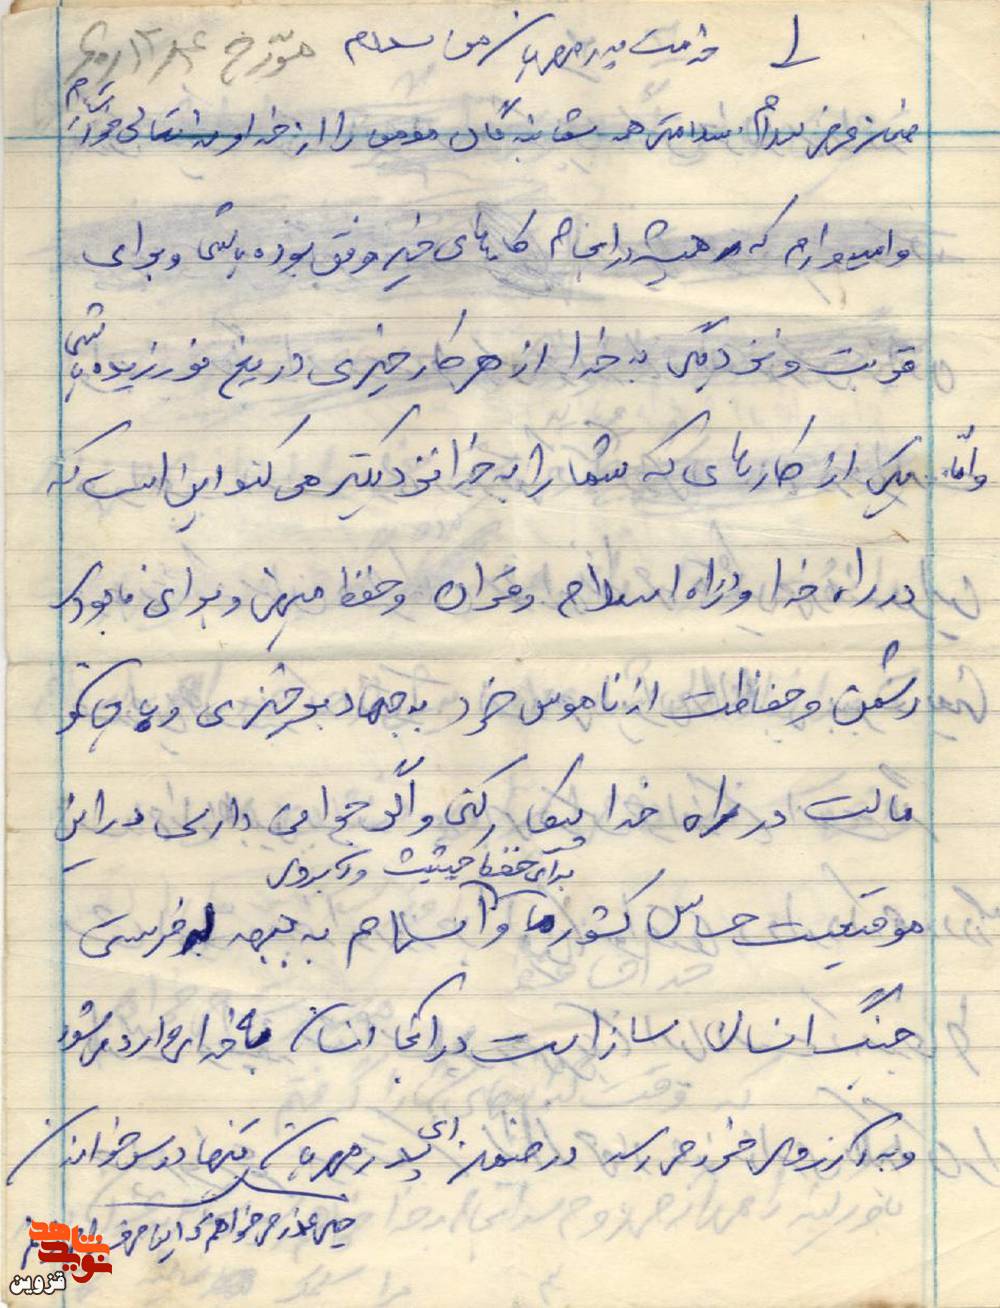 ۱ خدمت پدر مهربان من سلام مورخ
ضمن عرض سلام سلامتی همه شما بندگان مومن را از خداوند متعال خواهانم
و امیدوارم که همیشه در انجام کارهای خیر موفق بوده باشی و برای
قربت و نزدیکی به خدا از هر کار خیری دریغ نورزیده باشی
و امّا یکی از کارهای که شما را به خدا نزدیکتر می کند این است که
در راه خدا و در راه اسلام و قرآن و حفظ میهن و برای نابودی
دشمن و حفاظت از ناموس خود به جهاد برخیزی و با
مالت در راه خدا پیکار کنی و اگر جوانی داری در این
برای حفظ حیثیت و آبروی
موقعیت حساس کشور ما و اسلام به جبهه بفرستی
جنگ انسان ساز است در آنجا انسان به خدا می شود
و به آرزوی خود می رسد در ضمن ای پدر مهربان تنها درس خواندن
خیلی عذر می خواهم که این
نوید شاهد
قزوین